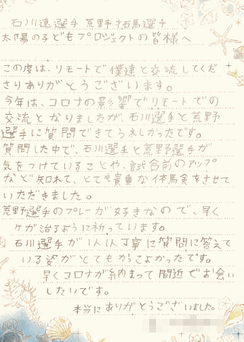 石川遼選手 荒野拓馬選手
太陽の子どもプロジェクトの皆様へ
この度は、リモートで僕達と交流してくだ
さりありがとうございます。
今年は、コロナの影響でリモートでの
交流となりましたが、石川遼選手と荒野
選手に質問できてうれしかったです。
質問した中で、石川遼選手と荒野選手が
気をつけていることや、試合前のアップ
など知れて、とても貴重な体験をさせて
いただきました。
荒野選手のプレーが好きなので、早く
ケガが治るように祈っています。
石川遼選手が1人1人丁寧に質問に答えて
いる姿がとてもかっこよかったです。
早くコロナが納まって間近でお会い
したいです。
本当にありがとうございました。